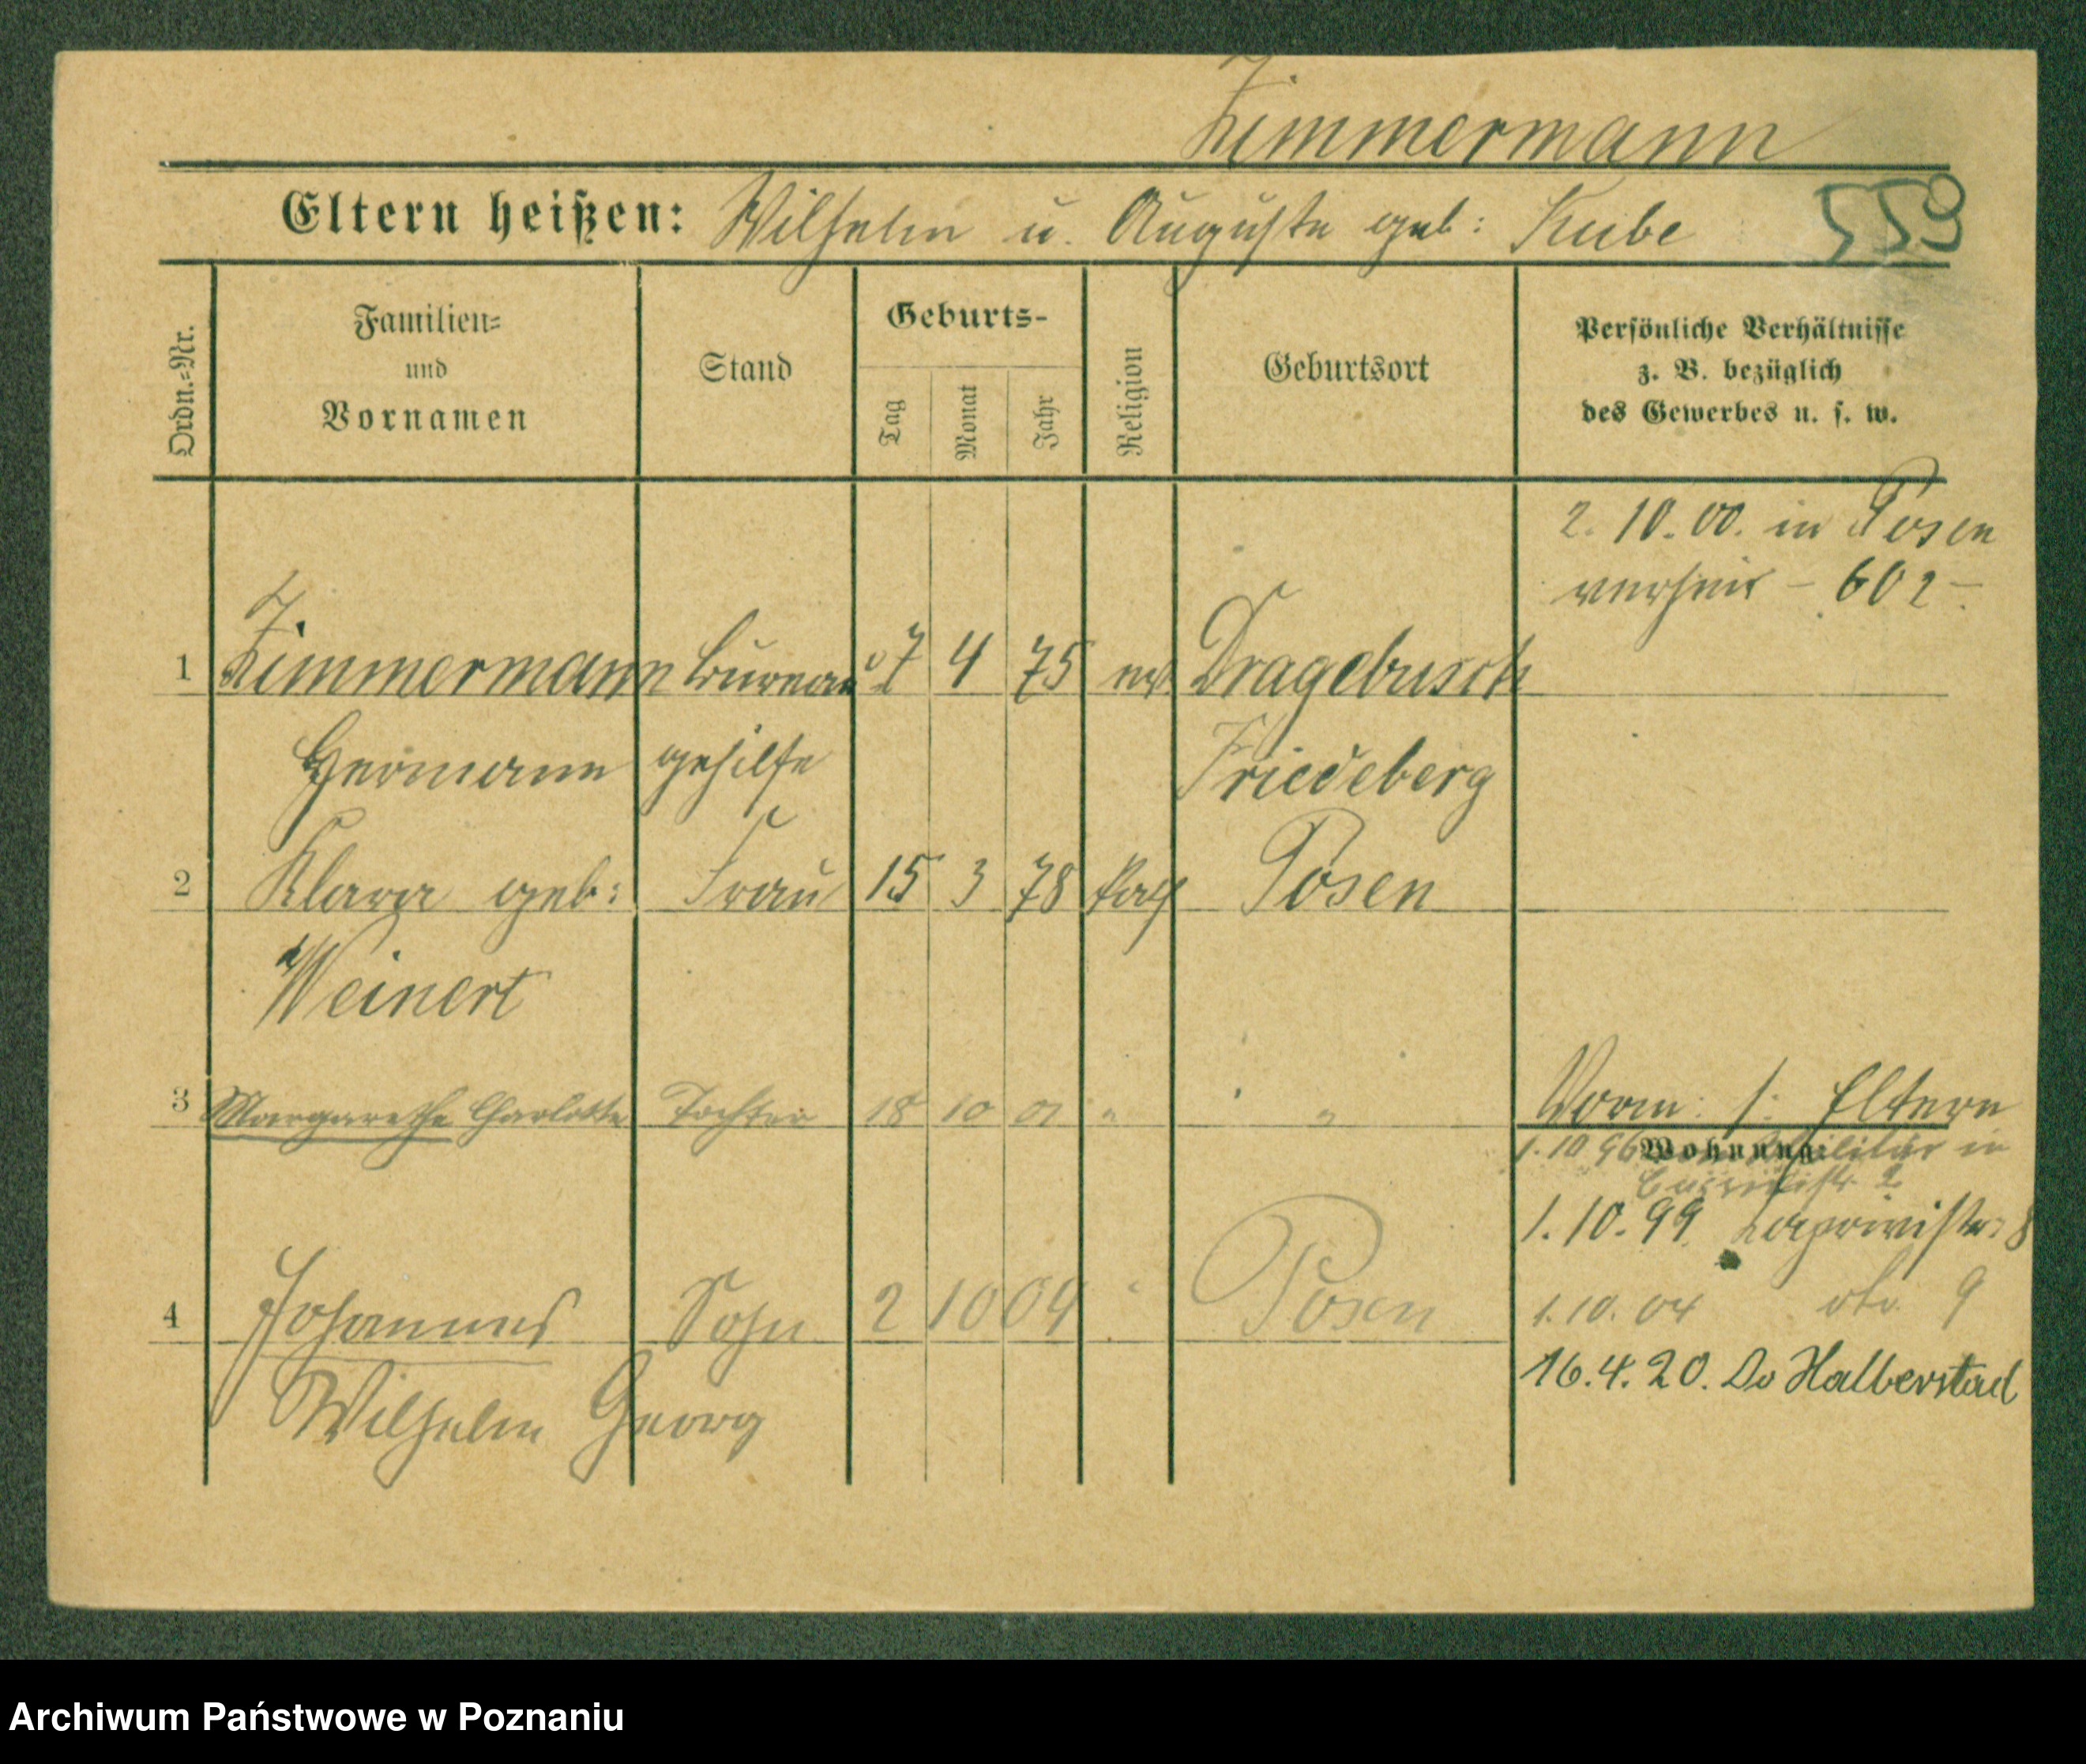 Zimmermann
Eltern heißen: Wilhelm u. Auguste geb: Kube 559
Ordn.-Nr. Familien- und Vornamen Stand Geburts- Tag Monat Jahr Religion Geburtsort Persönliche Verhältnisse z. B. bezüglich des Gewerbes u. s. w.
2. 10. 00. in Posen
verheir – 602 –
1 Zimmermann Bureau 7 4 75 ev. Dragebruch
Hermann gehilfe Friedeberg
2 Klara geb: Frau 15 3 78 kath Posen
Weinert
3 Margarethe Charlotte Tochter 18 10 01 " " " Vorm: s: Eltern
Wohnung:
1. 10 96 Militär in
1. 10. 99 8
4 Johannes Sohn 2 10 04 " Posen 1. 10. 04 dto 9
Wilhelm Georg
16. 4. 20. Do Halberstad
Archiwum Państwowe w Poznaniu